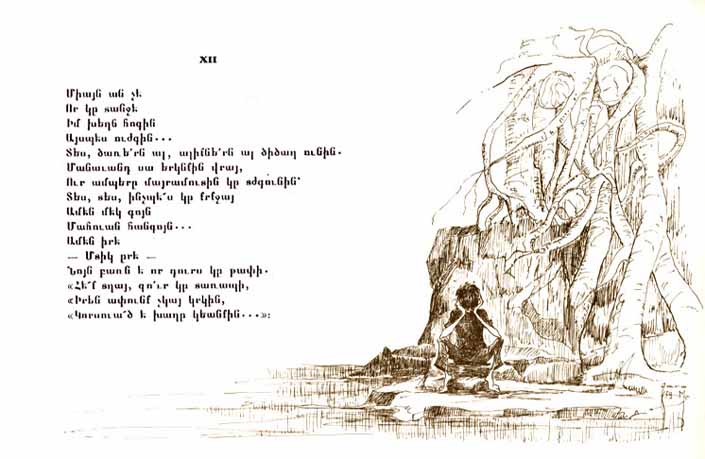 XII
Միայն ան չէ
Որ կը տանջէ
Իմ խեղճ հոգին
Այսպէս ուժգին...
Տես, ծառե՛րն ալ, ալիքնե՛րն ալ ծիծաղ ունին.
Մանաւանդ սա երկնքին վրայ,
Ուր ամպերը մայրամուտին կը ցժգունին՝
Տես, տես, ինչպէ՜ս կը քրքջայ
Ամէն մէկ գոյն
Մահուան հանգոյն...
Ամէն իրե
— Մտիկ ըրէ —
Նոյն բառն է որ դուրս կը թափի.
«Հէ՜ք տղայ, զո՛ւր կը տառապի,
«Իրեն ափունք չկայ կրկին,
«Կորսուա՜ծ է խաղը կեանքին...»։